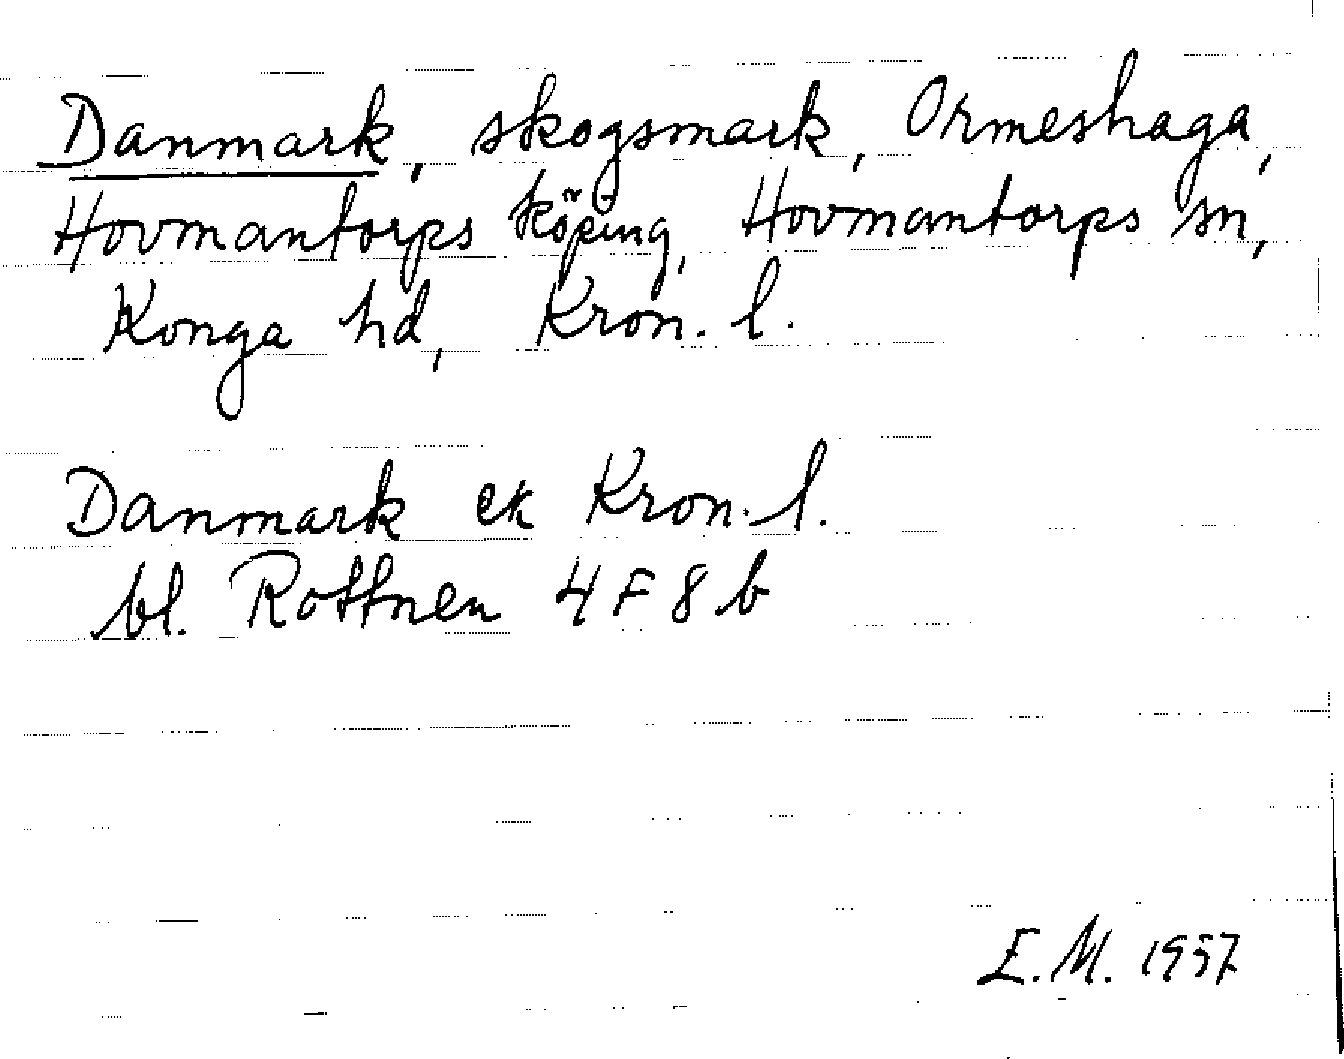 Danmark, skogsmark, Ormeshaga,
Hovmantorps köping, Hovmantorps sn,
Konga hd, Kron. l.
Danmark ek Kron. l.
bl. Rottnen 4 F 8 b
E.M. 1957